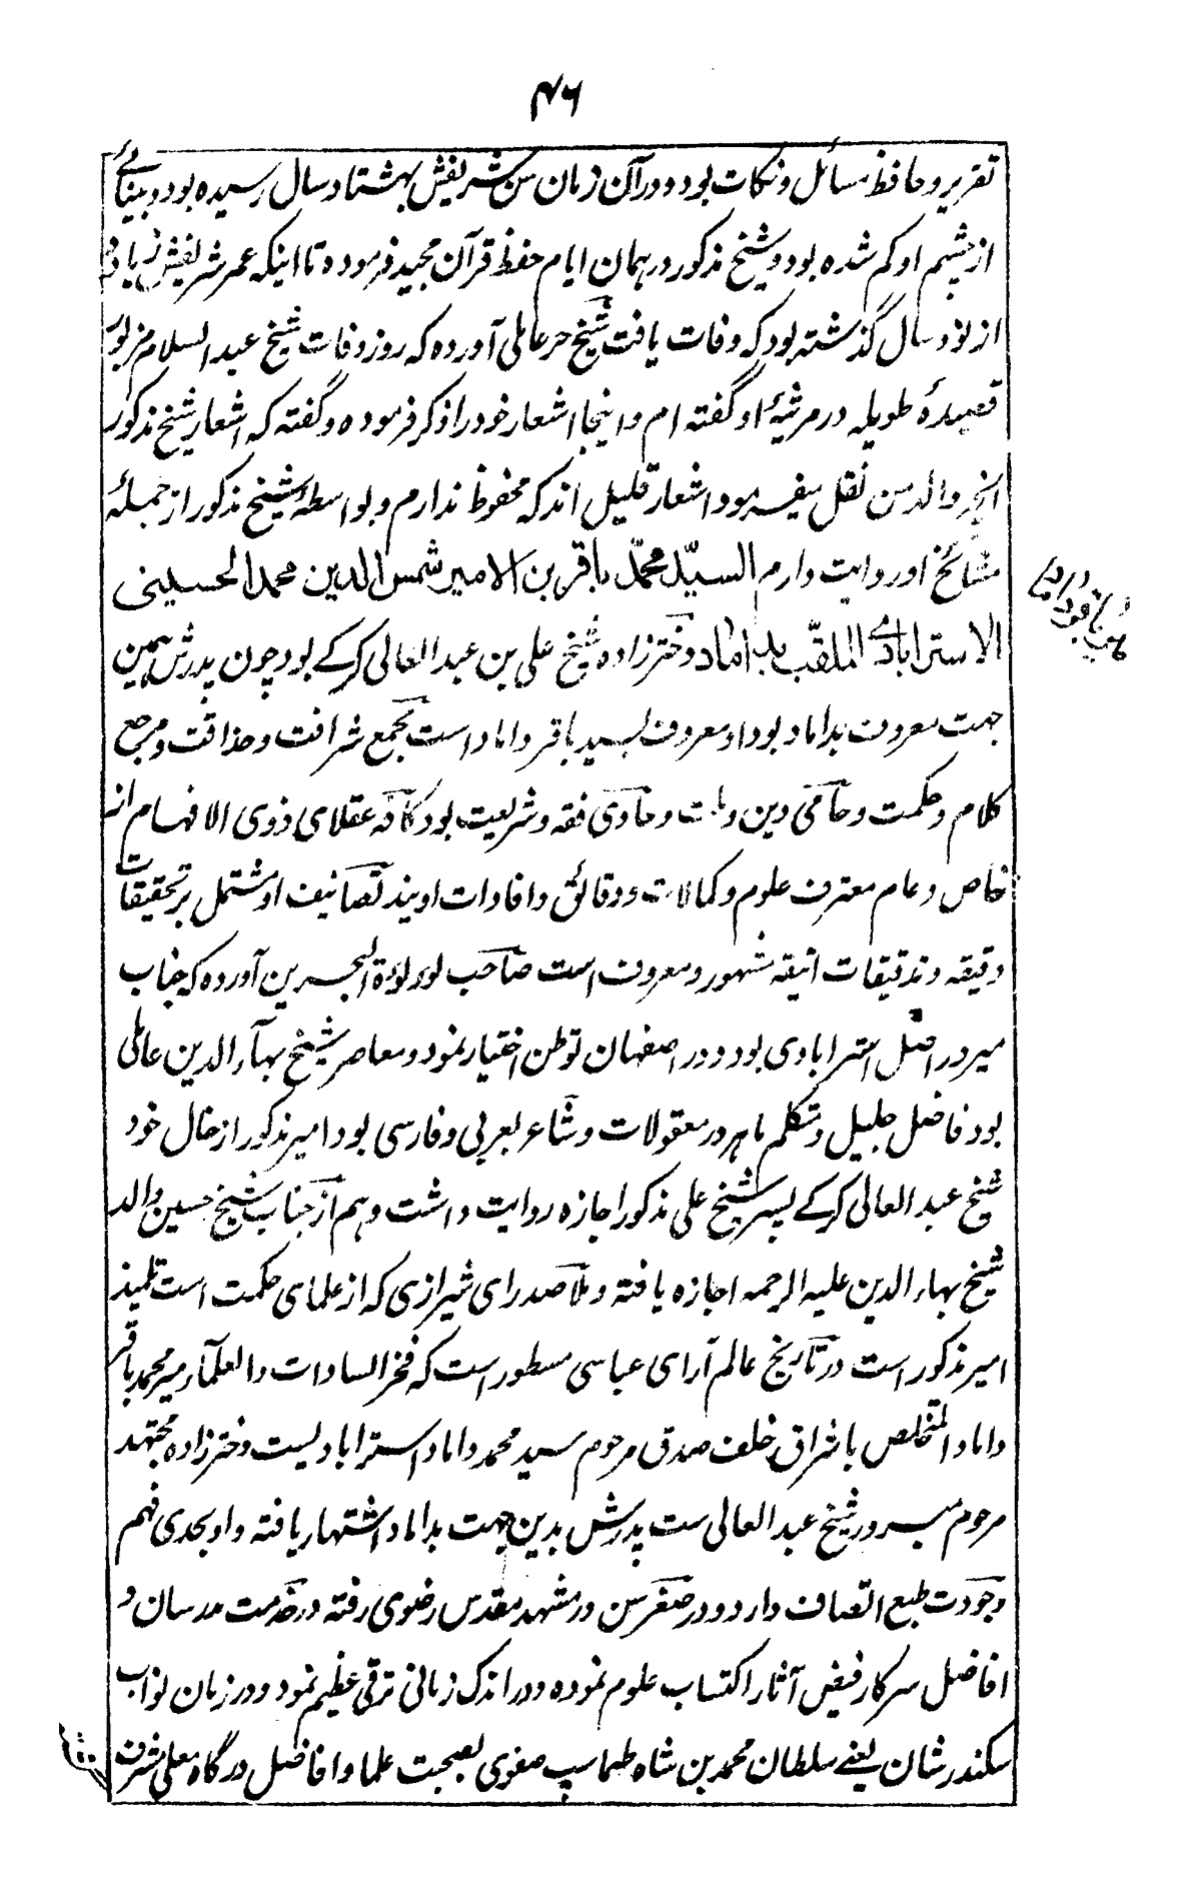 ۴۶
تقریر و حافظ مسائل و نکات بود و در آن زمان سن شریفش بهشتاد سال رسیده بود و بینائے
از چشم او کم شده بود و شیخ مذکور در همان ایام حفظ قرآن مجید فرموده تا اینکه عمر شریفش زیاده
از نود سال گذشته بود که وفات یافت شیخ حر عاملی آورده که روز وفات شیخ عبد السلام مزبور
قصیدهٔ طویله در مرثیهٔ او گفته ام و اینجا اشعار خود را ذکر فرموده و گفته که اشعار شیخ مذکور
انچه والد من نقل میفرمود اشعار قلیل اند که محفوظ ندارم و بواسطهٔ شیخ مذکور از جملهٔ
مشائخ او روایت دارم السیّد محمّد باقر بن الامیر شمس الدین محمد الحسینی
میر باقر داماد
الاسترابادے الملقّب بداماد دخترزاده شیخ علی بن عبد العالی کرکے بود چون پدرش بهمین
جهت معروف بداماد بود او معروف بسید باقر داماد است مجمع شرافت و حذاقت و مرجع
کلام و حکمت و حامی دین و ملت و حاوی فقه و شریعت بود کافه عقلای ذوی الافهام از
خاص و عام معترف علوم و کمالات و دقائق و افادات اویند تصانیف او مشتمل بر تحقیقات
دقیقه و تدقیقات انیقه مشهور و معروف است صاحب لؤلؤة البحرین آورده که جناب
میر در اصل استرابادی بود و در اصفهان توطن اختیار نمود و معاصر شیخ بهآء الدین عاملی
بود فاضل جلیل و متکلم ماهر در معقولات و شاعر بعربی و فارسی بود امیر مذکور از خال خود
شیخ عبد العالی کرکے پسر شیخ علی مذکور اجازه روایت داشت و هم از جناب شیخ حسین والد
شیخ بهاء الدین علیه الرحمه اجازه یافته و ملا صدرای شیرازی که از علمای حکمت است تلمیذ
امیر مذکور است در تاریخ عالم آرای عباسی مسطور است که فخر السادات والعلمآء میر محمد باقر
داماد المتخلص باشراق خلف صدق مرحوم سید محمد داماد استرابادیست و دخترزاده مجتهد
مرحوم مبرور شیخ عبد العالی ست پدرش بدین جهت بداماد اشتهار یافته و او بحدی فهم
وجودت طبع اتصاف دارد و در صغر سن در مشهد مقدس رضوی رفته در خدمت مدرسان و
افاضل سرکار فیض آثار اکتساب علوم نموده و در اندک زمانی ترقی عظیم نمود و در زمان نواب
سکندرشان یعنے سلطان محمد بن شاه طهماسپ صفوی بصحبت علما و افاضل درگاه معلی مشرف